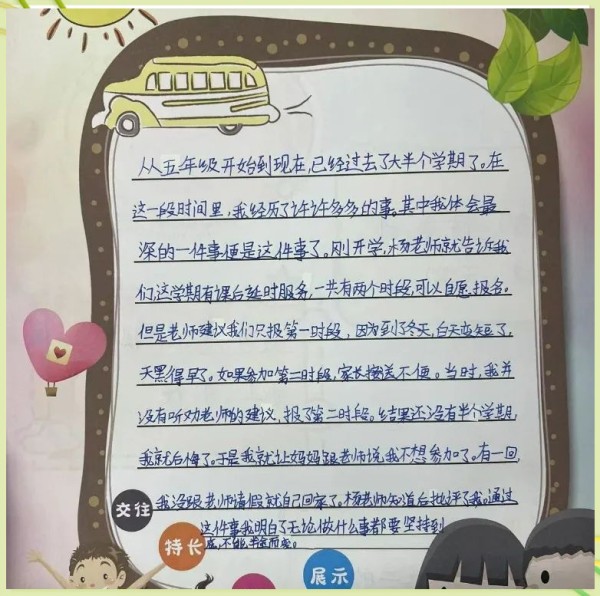 从五年级开始到现在,已经过去了大半个学期了。在
这一段时间里,我经历了许许多多的事。其中我体会最
深的一件事便是这件事了。刚开学,杨老师就告诉我
们,这学期有课后延时服务,一共有两个时段,可以自愿报名。
但是老师建议我们只报第一时段,因为到了冬天,白天变短了,
天黑得早了。如果参加第二时段,家长接送不便。当时,我并
没有听劝老师的建议,报了第二时段。结果还没有半个学期,
我就后悔了。于是我就让妈妈跟老师说我不想参加了。有一回,
我没跟老师请假就自己回家了。杨老师知道后批评了我。通过
这件事我明白了无论做什么事都要坚持到
底,不能半途而废。
交往
特长
展示